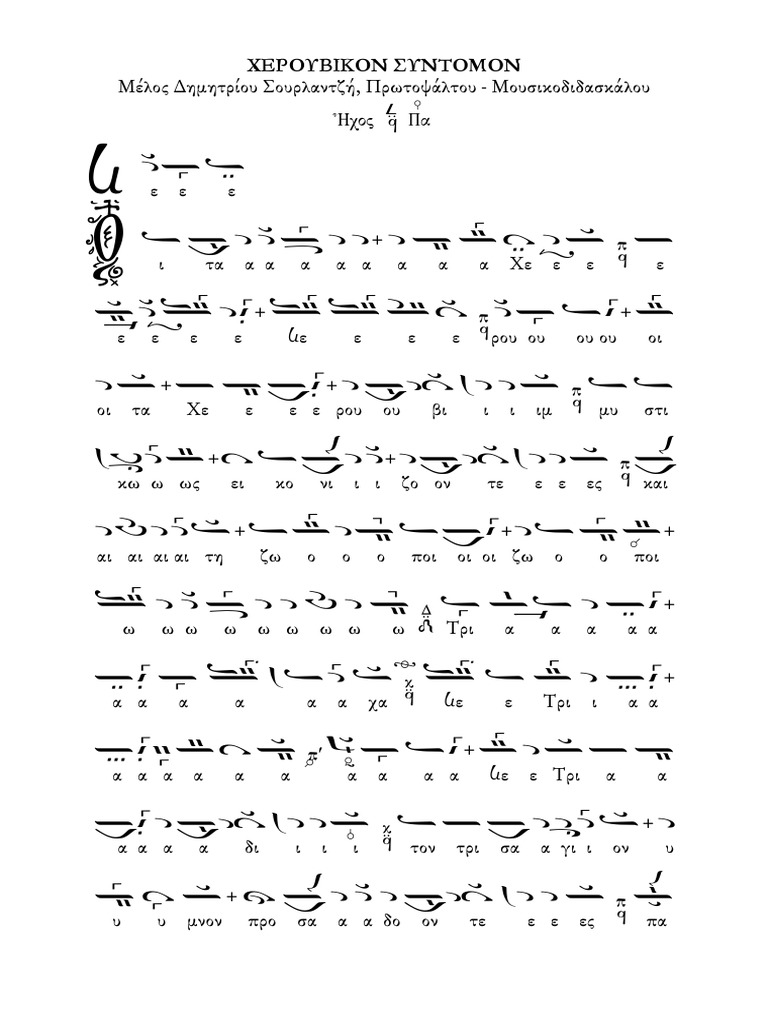 ΧΕΡΟΥΒΙΚΟΝ ΣΥΝΤΟΜΟΝ
Μέλος Δημητρίου Σουρλαντζή, Πρωτοψάλτου - Μουσικοδιδασκάλου
Ἦχος Πα
ε ε ε
Ο ι τα α α α α α α α α Χε ε ε ε
ε ε ε ε ε ε ε ε ρου ου ου ου οι
οι τα Χε ε ε ε ρου ου βι ι ι ιμ μυ στι
κω ω ως ει κο νι ι ι ζο ον τε ε ε ες και
αι αι αι αι τη ζω ο ο ο ποι οι οι ζω ο ο ποι
ω ω ω ω ω ω ω ω ω Τρι α α α α α
α α α α α α χα ε ε Τρι ι α α
α α α α α α α α α α ε ε Τρι α α
α α α α δι ι ι ι τον τρι σα α γι ι ον υ
υ υ μνον προ σα α α δο ον τε ε ε ες πα